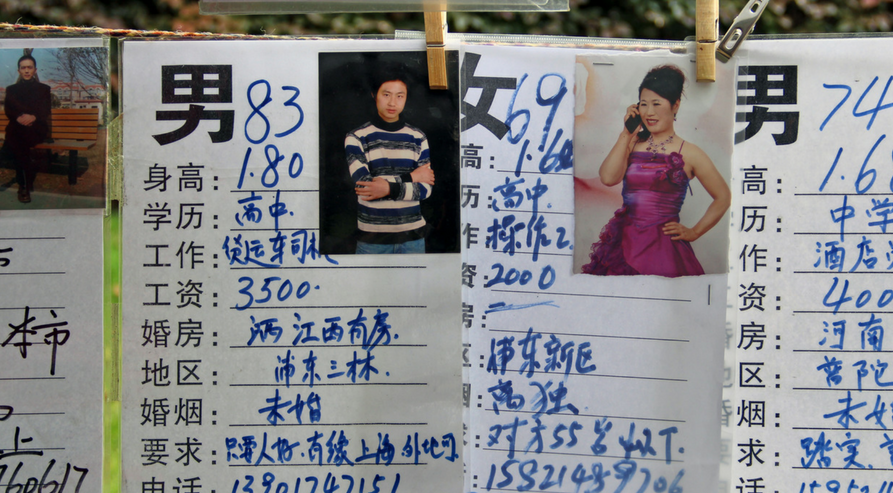 男 83
身高: 1.80
学历: 高中.
工作: 货运车司机
工资: 3500.
婚房: 江西有房.
地区: 浦东三林.
婚烟: 未婚
要求: 只要人好.有缘上海.外地可.
电话: 13901747151
女 69
高: 1.6
历: 高中.
作: 操作工
资: 2000
房:
区: 浦东新区
烟: 离独
求: 对方55岁以下.
男 74
高: 1.6
历: 中学
作: 酒店
资: 400
房: 河南
区: 普陀
烟: 未婚
求: 踏实.
本市
上
760617